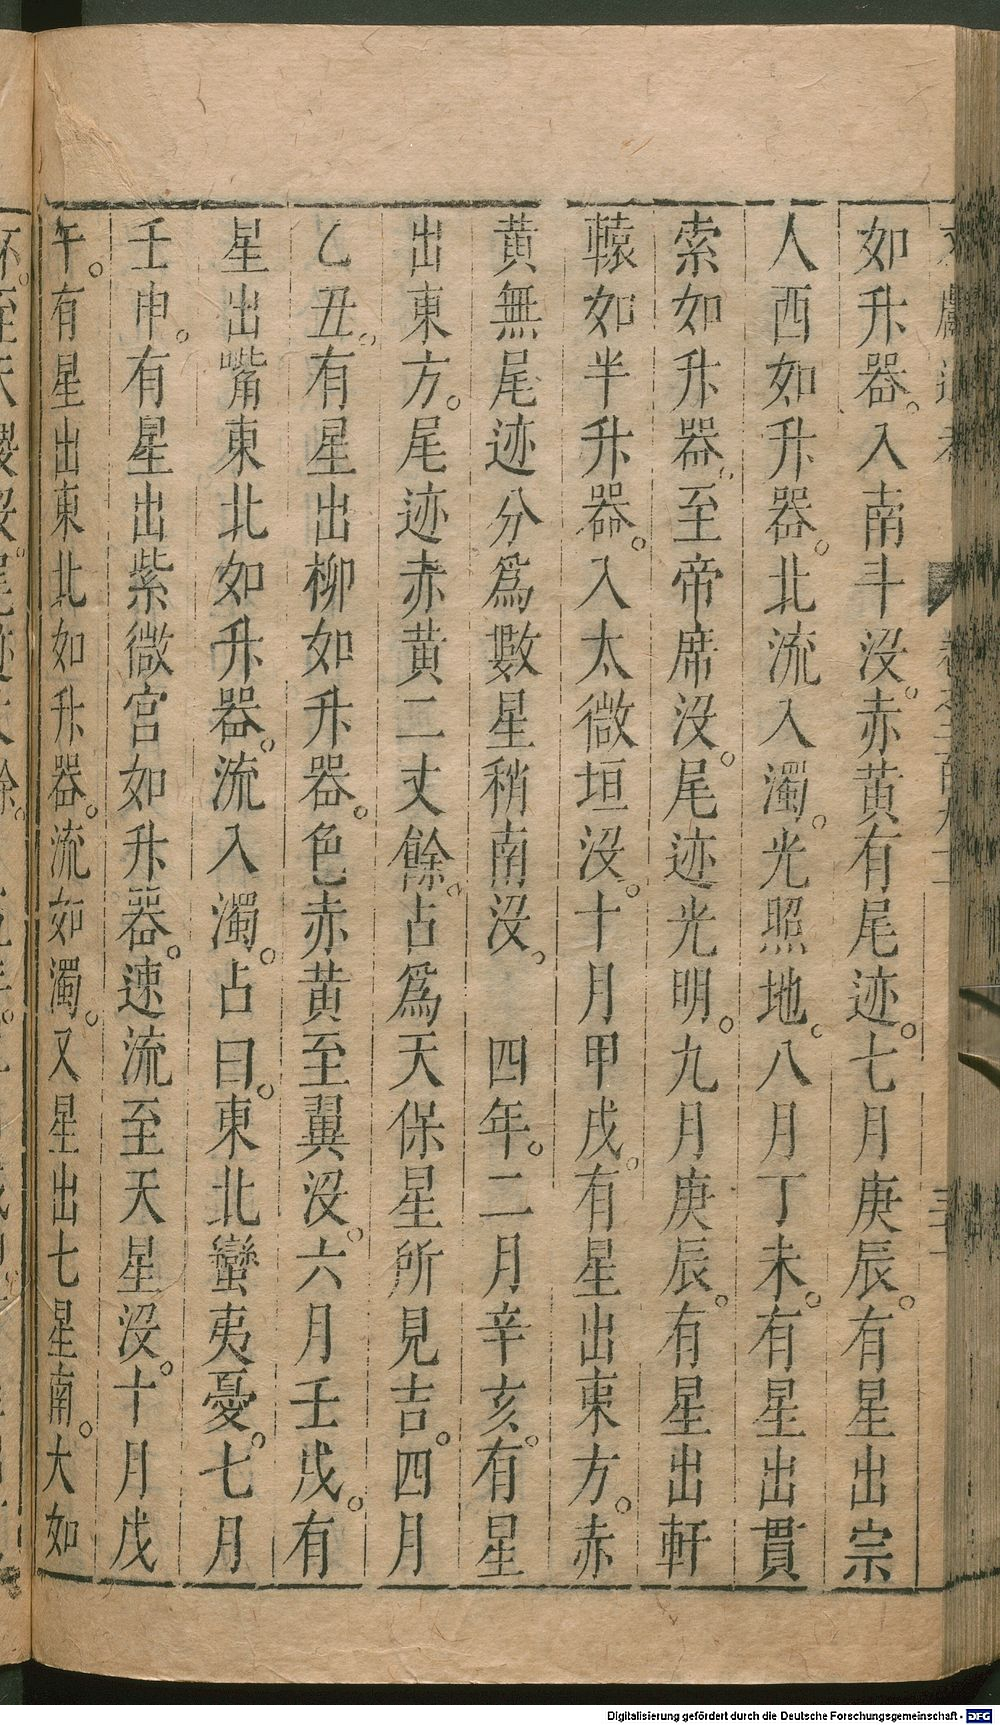 如升器。入南斗没。赤黄有尾迹。七月庚辰。有星出宗
人西如升器。北流入濁。光照地。八月丁未。有星出貫
索如升器。至帝席没。尾迹光明。九月庚辰。有星出軒
轅如半升器。入太微垣没。十月甲戌。有星出東方。赤
黄無尾迹分爲數星稍南没。　四年。二月辛亥。有星
出東方。尾迹赤黄二丈餘。占爲天保星所見吉。四月
乙丑。有星出柳如升器。色赤黄至翼没。六月壬戌。有
星出嘴東北如升器。流入濁。占曰。東北蠻夷憂。七月
壬申。有星出紫微宫如升器。速流至天星没。十月戊
午。有星出東北如升器。流如濁。又星出七星南。大如
Digitalisierung gefördert durch die Deutsche Forschungsgemeinschaft - DFG